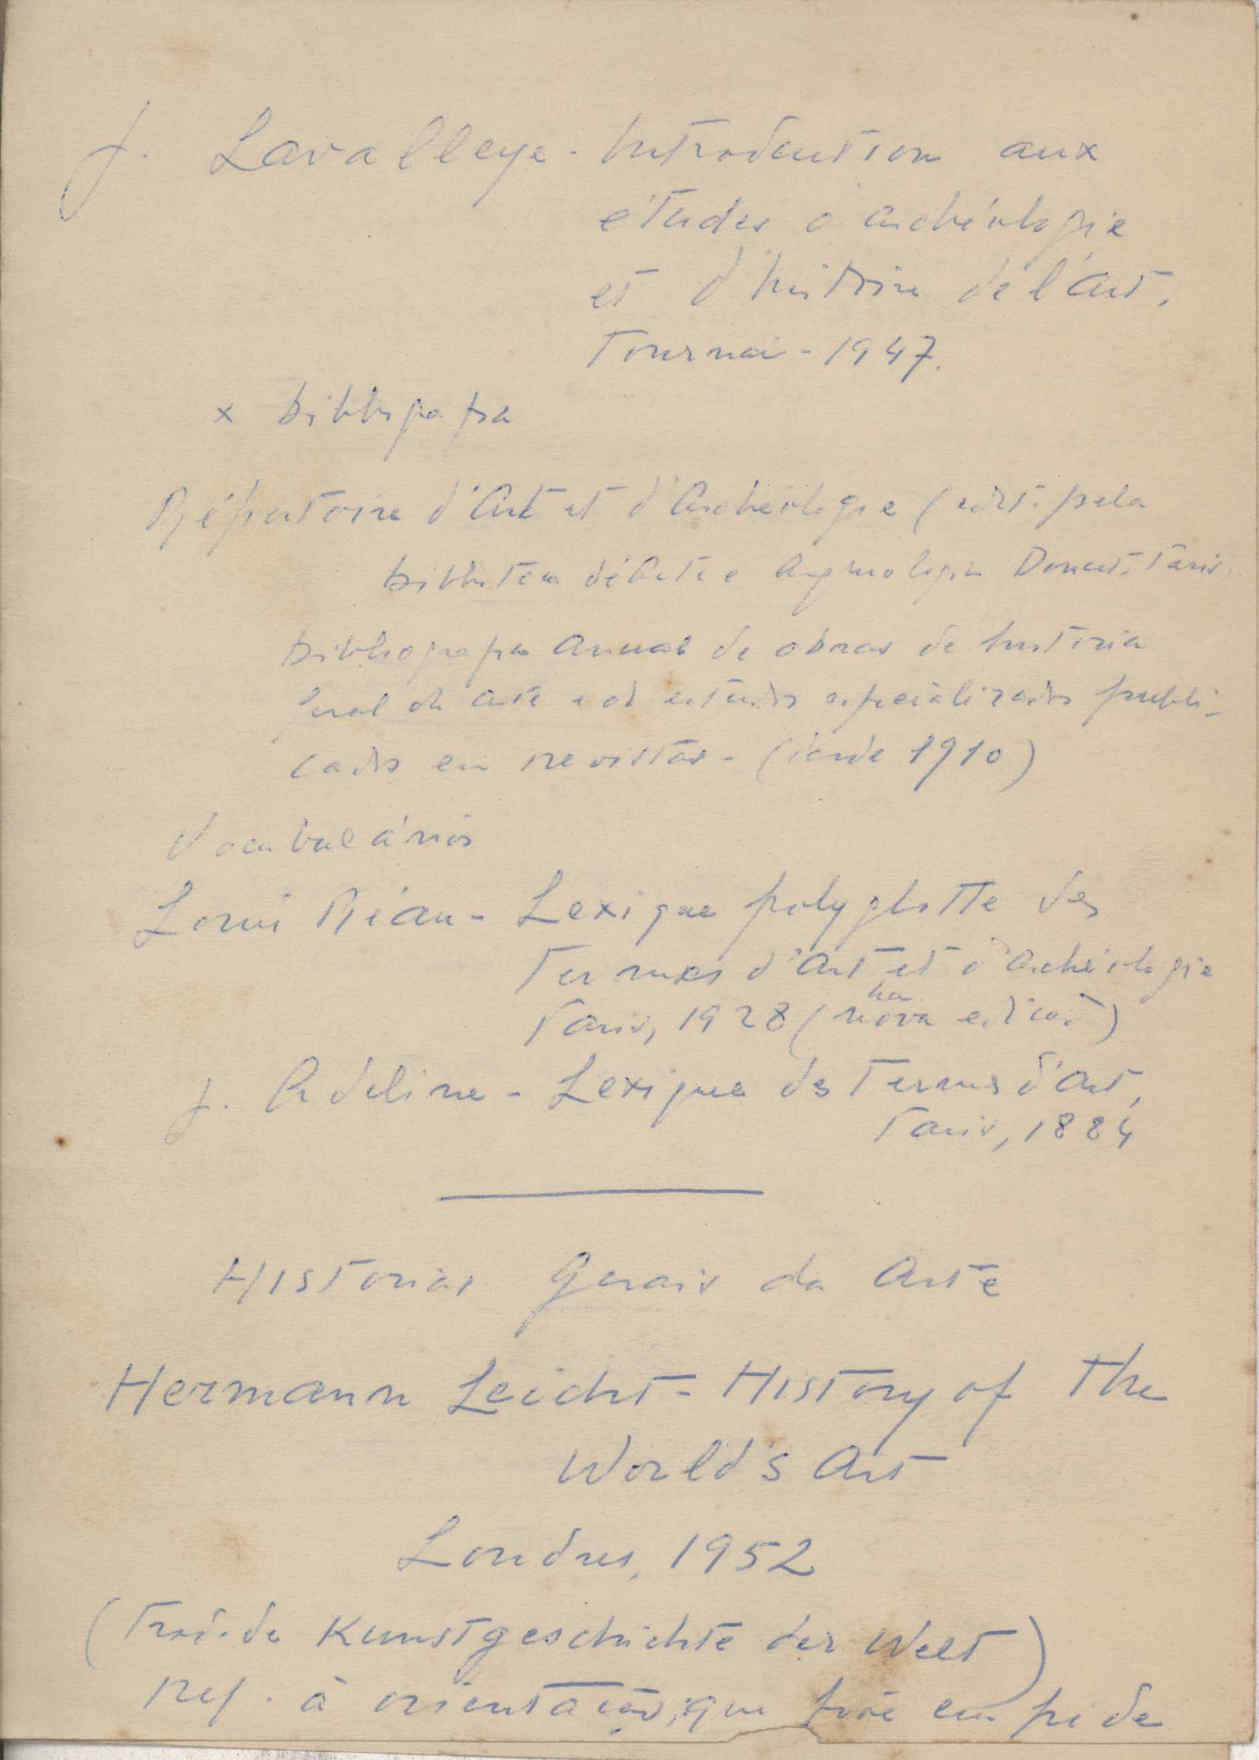 J. Lavalleye - Introduction aux
études d'archéologie
et d'histoire de l'art.
Tournai - 1947.
x bibliografia
Répertoire d'Art et d'Archéologie (edit. pela
biblioteca de Arte e Arqueologia Doucet, Paris
bibliografia anual de obras de historia
geral da arte e de estudos especializados publi-
cados em revistas - (desde 1910)
Vocabulários
Louis Réau - Lexique polyglotte des
Termes d'Art et d'Archéologie
Paris, 1928 (há nova edição)
J. Adeline - Lexique des Termes d'Art,
Paris, 1884
Historias Gerais da Arte
Hermann Leicht - History of the
World's Art
Londres, 1952
(Trad. de Kunstgeschichte der Welt)
Ref. à orientação, que põe em pé de